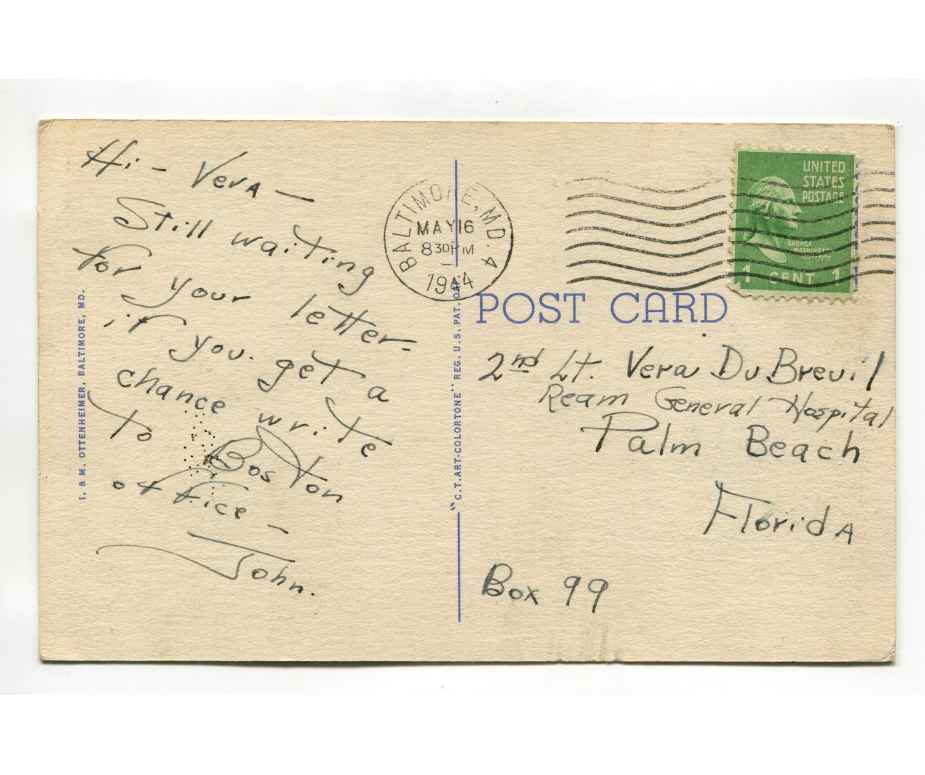 Hi – Vera –
Still waiting
for your letter –
if you get a
chance write
to Boston
office –
John.
I. & M. OTTENHEIMER, BALTIMORE, MD.
"C.T. ART-COLORTONE" REG. U.S. PAT. OFF.
BALTIMORE, MD. 4
MAY 16
8 30 PM
1944
UNITED
STATES
POSTAGE
GEORGE
WASHINGTON
1 CENT 1
POST CARD
2nd Lt. Vera DuBreuil
Ream General Hospital
Palm Beach
Florida
Box 99